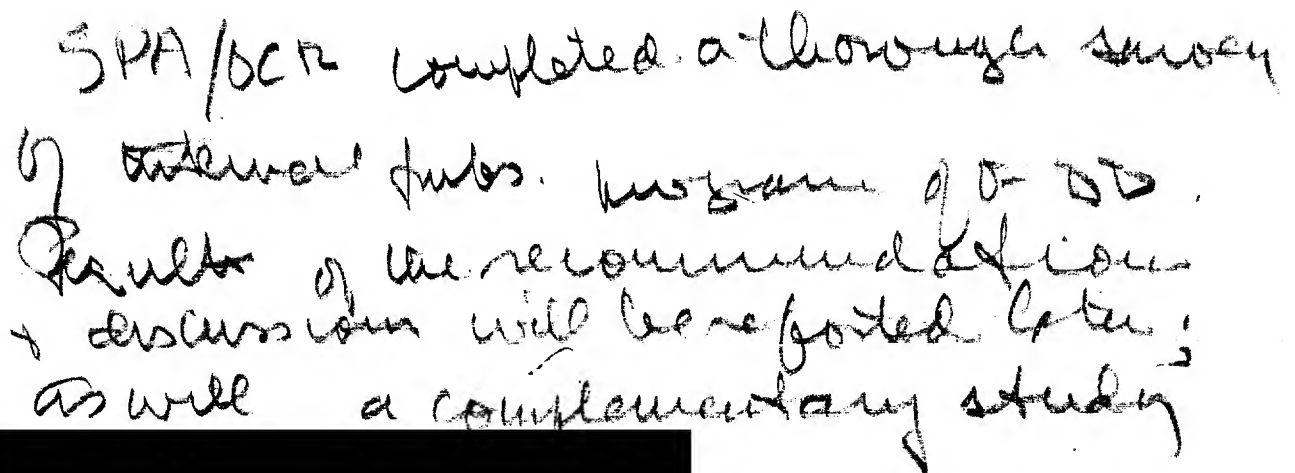 SPA/DCR completed a thorough survey
of internal pubs. program of
Results of the recommendations
& discussions will be reported later;
as will a complementary study